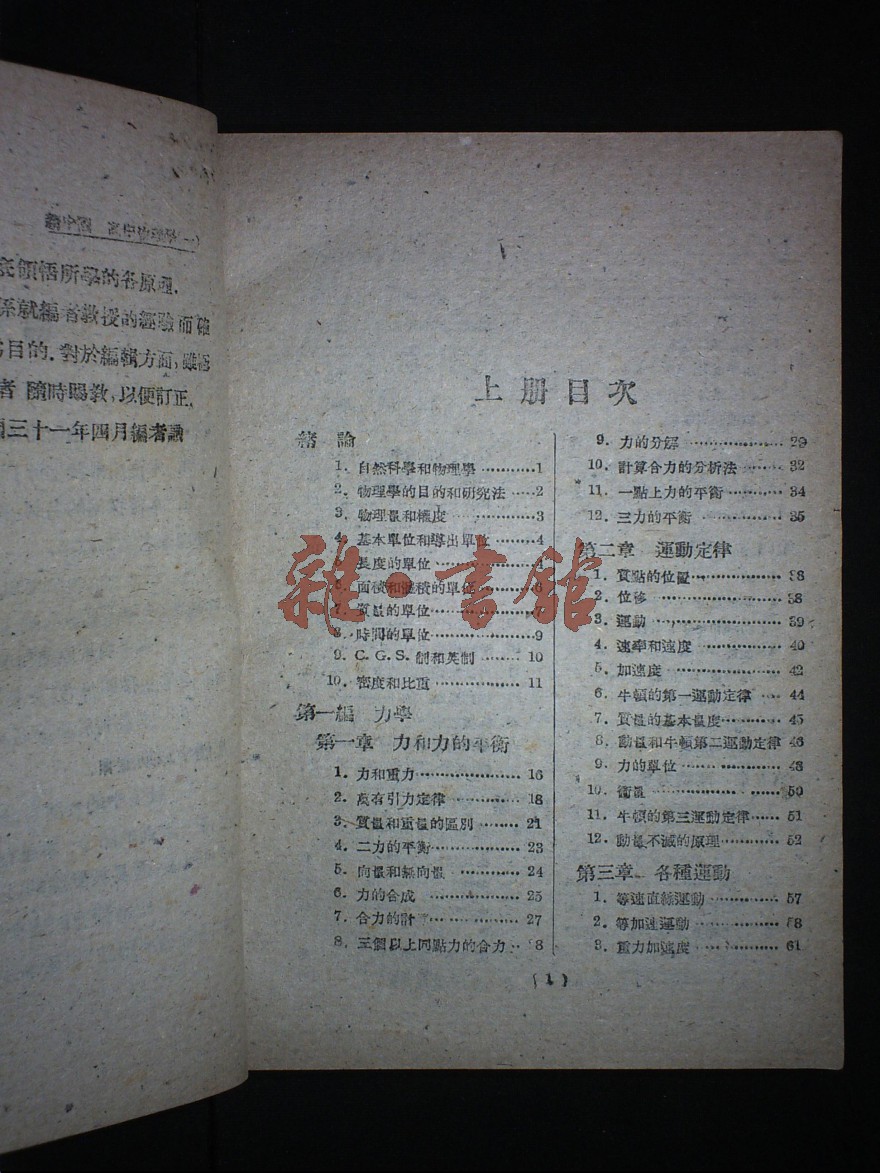 高中物理學(一)
底領悟所學的各原理.
係就編者教授的經驗而確
目的.對於編輯方面,雖
者 隨時賜教,以便訂正.
國三十一年四月編者識
上册目次
緒論
1. 自然科學和物理學 ………1
2. 物理學的目的和研究法 ……2
3. 物理量和極度 ………3
4. 基本單位和導出單位 ……4
5. 長度的單位 ………4
6. 面積和體積的單位 ………6
7. 質量的單位
8. 時間的單位 ………9
9. C. G. S. 制和英制 ……… 10
10. 密度和比重 ……… 11
第一編 力學
第一章 力和力的平衡
1. 力和重力 ……… 16
2. 萬有引力定律 ……… 18
3. 質量和重量的區別 ……… 21
4. 二力的平衡 ……… 23
5. 向量和無向量 ……… 24
6. 力的合成 ……… 25
7. 合力的計 ……… 27
8. 三個以上同點力的合力 ‥ 28
9. 力的分解 ……… 29
10. 計算合力的分析法 ……… 32
11. 一點上力的平衡 ……… 34
12. 三力的平衡 ……… 35
第二章 運動定律
1. 質點的位置 ……… 38
2. 位移 ……… 38
3. 運動 ……… 39
4. 速率和速度 ……… 40
5. 加速度 ……… 42
6. 牛頓的第一運動定律 …… 44
7. 質量的基本量度 ……… 45
8. 動量和牛頓第二運動定律 46
9. 力的單位 ……… 48
10. 衝量 ……… 50
11. 牛頓的第三運動定律 …… 51
12. 動量不滅的原理 ……… 52
第三章 各種運動
1. 等速直線運動 ……… 57
2. 等加速運動 ……… 58
3. 重力加速度 ……… 61
(1)
雜·書館